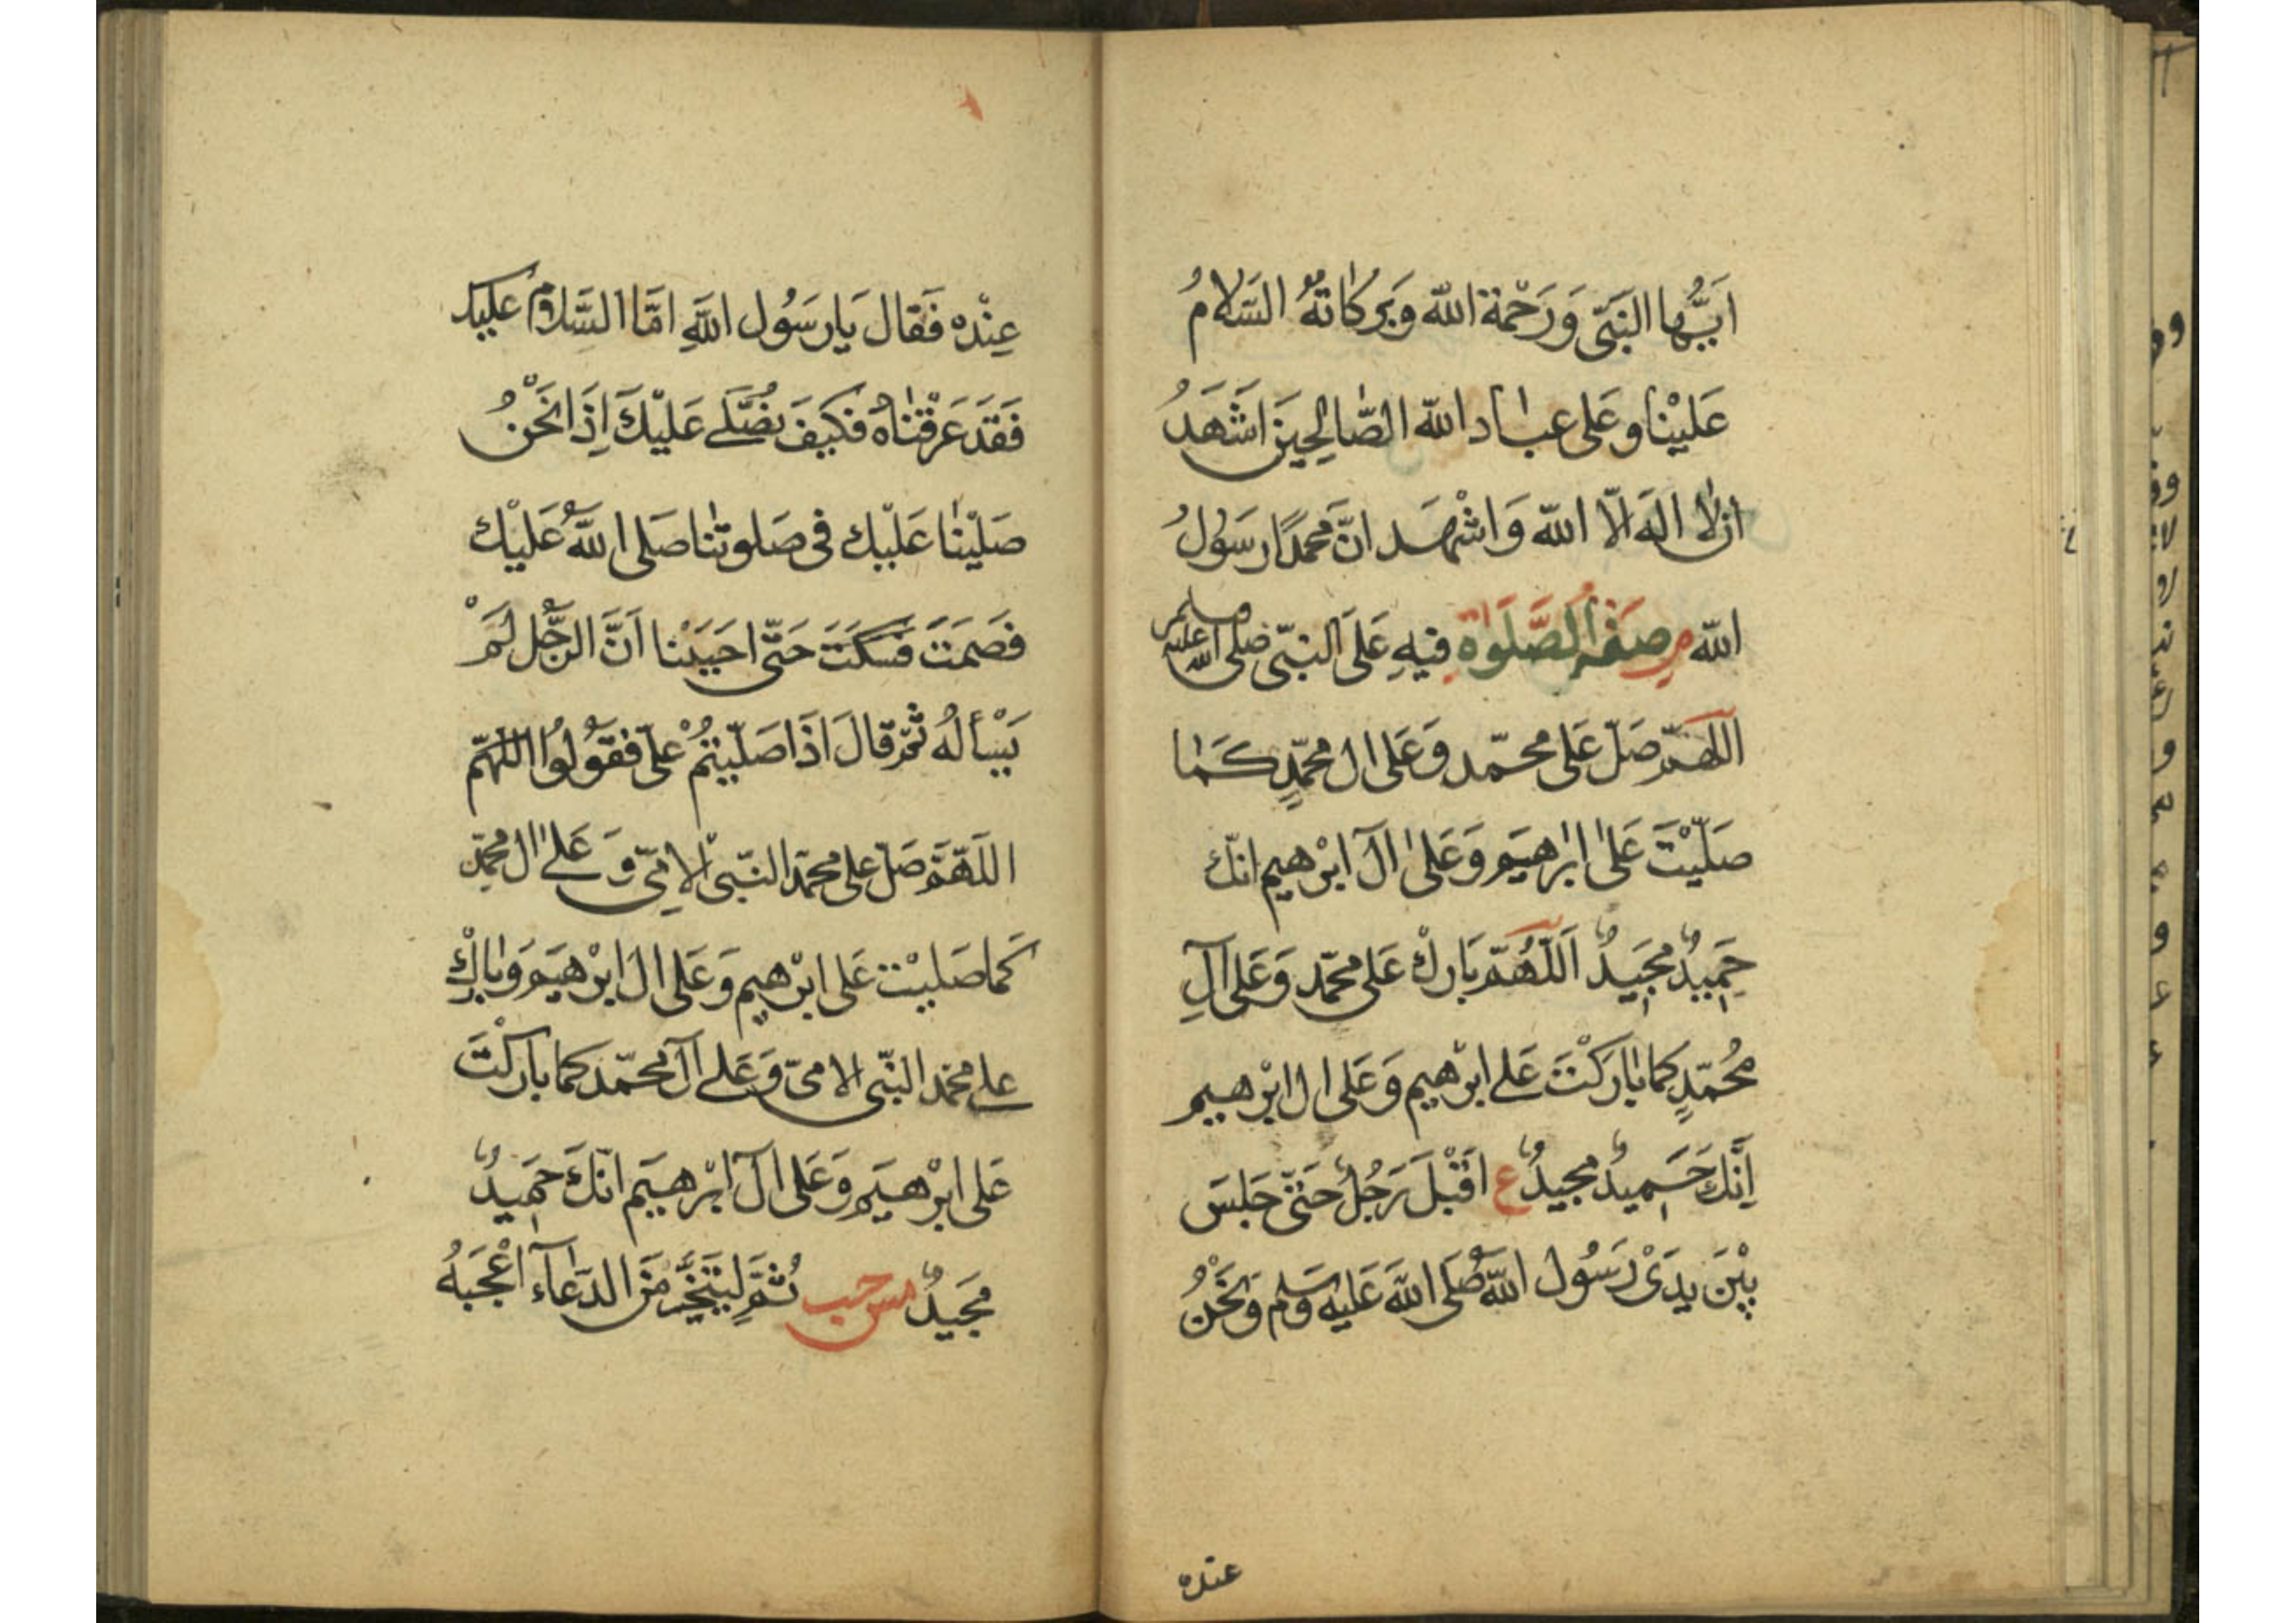 اَيُّها النَبّى وَرَحْمَة الله وَبَركاتهُ السَلامُ
عَليْنا وعَلى عباد الله الصّالِحِينَ اشَهَدُ
ان لا اله الّا الله وَاشْهَد انّ محمدًا رسَولُ
الله مر صفة الصَّلَوٰة فيهِ عَلَى النبّى صلى الله عليه وسلم
اللهمّ صَلّ عَلى محمّد وَعَلى ال محمّدٍ كَما
صَلّيْتَ عَلىٰ ابرٰهيَم وَعَلىٰ الَ ابْرهيم انّك
حَمِيدٌ مجَيدٌ اَللّهُمّ بَارك عَلى محمّد وَعَلى آلِ
مُحمّدٍ كما باركْتَ عَلے ابرْهيم وَعَلى ال ابْرهيم
اِنَّكَ حَمِيدٌ مجيدٌ ع اقْبَلَ رَجُلٌ حَتىّ جَلسَ
بيْنَ يدَىْ رَسُول اللهِ صَلى اللهَ عَليهِ وَسَلم وَنَحْنُ
عنده
عِنْده فَقال يَا رسَوُل اللهِ امّا السَّلامُ عليك
فَقَد عَرفْنٰاهُ فكيفَ نصَّلے عَليْكَ اِذَا نَحْنُ
صَليْنٰا عَليْك فى صَلوتنٰا صَلى اللهُ عَليْك
فَصَمَتَ فسَكتَ حَتّى احَبَبْنا اَنّ الرجُّل لمَْ
يَسْألهُ ثمّ قالَ اذَا صَلّيتمُْ علىّ فقوُلوُا اللهمّ
اللهمّ صَلّ على محمّد النبّى الامّى وَ علىٰ ال محمّدِ
كَما صَليْت عَلى ابرْهيم وَعَلى الَ ابْرهيَم وَبٰاركْ
على محمّد النبّى الامىّ وَعَلے آل محمّد كما باركْتَ
عَلى ابرْهيَم وَعَلى الَ ابْرهيَم انّكَ حَمِيدٌ
مجَيدٌ مس حب ثمّ ليَتخيّرْ مَنَ الدعَآء اعْجَبهُ